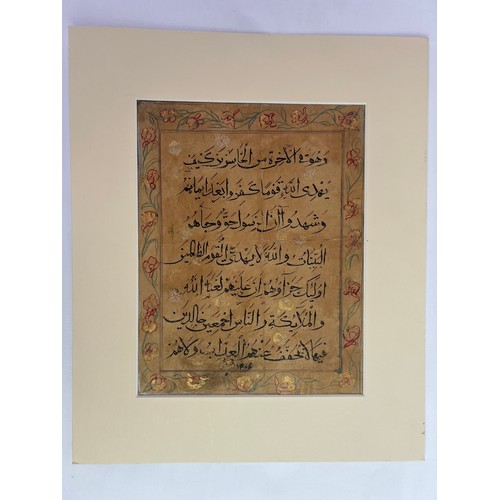 وهو فى الآخرة من الخاسرين كيف
يهدى الله قوما كفروا بعد ايمانهم
وشهدوا ان الرسول حق وجاءهم
البينات والله لا يهدى القوم الظالمين
اولئك جزآوهم ان عليهم لعنة الله
والملآئكة والناس اجمعين خالدين
فيها لا يخفف عنهم العذاب ولاهم